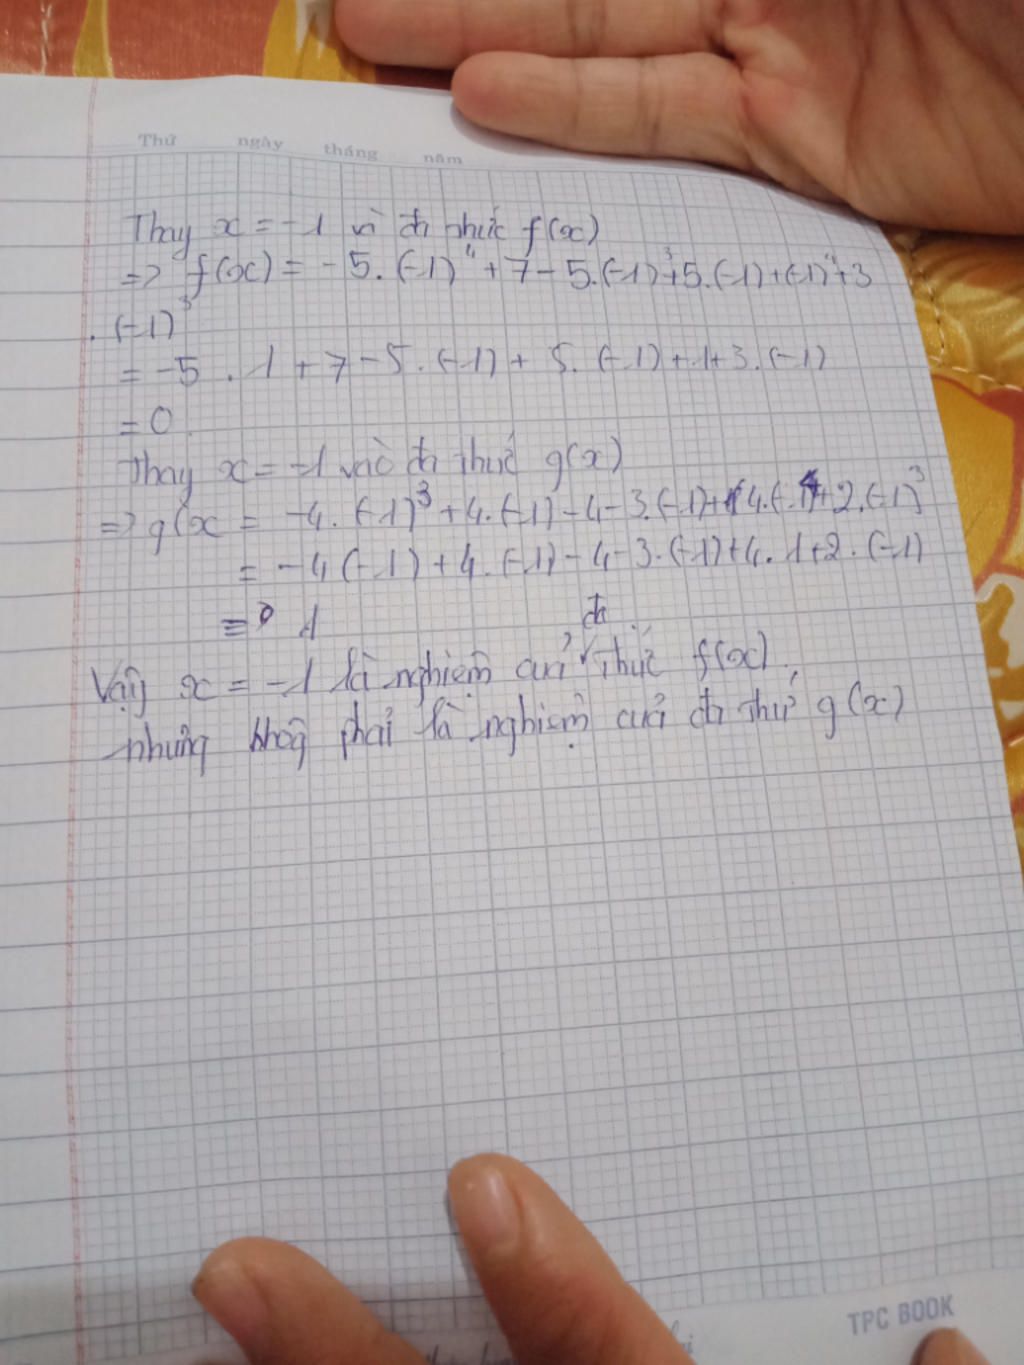 Thứ ngày tháng năm
Thay x = -1 vì đt thức f(x)
=> f(x) = -5.(-1)⁴ + 7 - 5.(-1)³+5.(-1)+(-1)⁴+3
.(-1)³
= -5 . 1 + 7 - 5.(-1) + 5.(-1)+1+3.(-1)
= 0
Thay x = -1 vào đt thức g(x)
=> g(x = -4.(-1)³+4.(-1)-4-3.(-1)+4.(-1)⁴+2.(-1)³
= -4(-1)+4.(-1)-4-3.(-1)+4.1+2.(-1)
= 1
Vậy x = -1 là nghiệm cuả đt thức f(x),
nhưng không phải là nghiệm cuả đt thứ g(x)
TPC BOOK